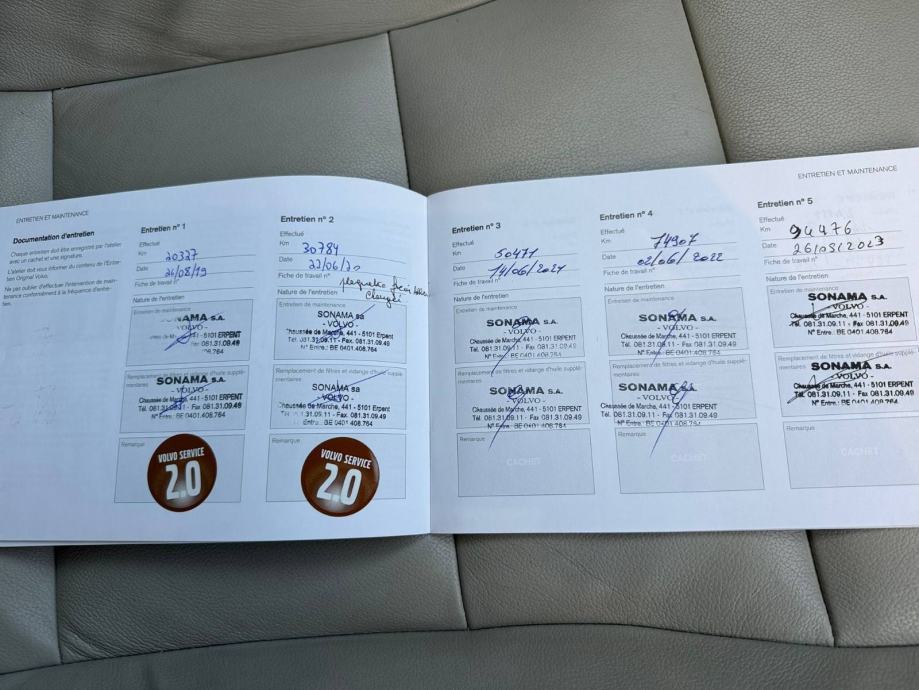 ENTRETIEN ET MAINTENANCE
Documentation d'entretien
Chaque entretien doit être enregistré par l'atelier
avec un cachet et une signature.
L'atelier doit vous informer du contenu de l'Entre-
tien Original Volvo.
Ne pas oublier d'effectuer l'intervention de main-
tenance conformément à la fréquence d'entre-
tien.
Entretien n° 1
Effectué
Km 20327
Date 26/08/19
Fiche de travail n°
Nature de l'entretien
Entretien de maintenance
SONAMA S.A.
- VOLVO -
5101 ERPENT
081.31.09.49
Remplacement de filtres et vidange d'huile supplé-
mentaires
SONAMA S.A.
- VOLVO -
Chaussée de Marche, 441 - 5101 ERPENT
Tél. 081.31.09.11 - Fax 081.31.09.49
N° Entre.: BE 0401.408.764
Remarque
VOLVO SERVICE
2.0
Entretien n° 2
Effectué
Km 30784
Date 22/06/20
Fiche de travail n°
Nature de l'entretien
Entretien de maintenance
SONAMA sa
- VOLVO -
Chaussée de Marche, 441 - 5101 Erpent
Tél. 081.31.09.11 - Fax. 081.31.09.49
N° Entre.: BE 0401.408.764
Remplacement de filtres et vidange d'huile supplé-
mentaires
SONAMA sa
- VOLVO -
Chaussée de Marche, 441 - 5101 Erpent
31.09.11 - Fax. 081.31.09.49
Entre.: BE 0401.408.764
Remarque
VOLVO SERVICE
2.0
ENTRETIEN ET MAINTENANCE
Entretien n° 3
Effectué
Km 50471
Date 14/06/2021
Fiche de travail n°
Nature de l'entretien
Entretien de maintenance
SONAMA S.A.
- VOLVO -
Chaussée de Marche, 441 - 5101 ERPENT
Tél. 081.31.09.11 - Fax 081.31.09.49
N° Entre.: BE 0401.408.764
Remplacement de filtres et vidange d'huile supplé-
mentaires
SONAMA S.A.
- VOLVO -
Chaussée de Marche, 441 - 5101 ERPENT
Tél. 081.31.09.11 - Fax 081.31.09.49
N° Entre.: BE 0401.408.764
Remarque
CACHET
Entretien n° 4
Effectué
Km 74907
Date 02/06/2022
Fiche de travail n°
Nature de l'entretien
Entretien de maintenance
SONAMA S.A.
- VOLVO -
Chaussée de Marche, 441 - 5101 ERPENT
Tél. 081.31.09.11 - Fax 081.31.09.49
N° Entre.: BE 0401.408.764
Remplacement de filtres et vidange d'huile supplé-
mentaires
SONAMA S.A.
- VOLVO -
Chaussée de Marche, 441 - 5101 ERPENT
Tél. 081.31.09.11 - Fax 081.31.09.49
N° Entre.: BE 0401.408.764
Remarque
CACHET
Entretien n° 5
Effectué
Km 94476
Date 2023
Fiche de travail n°
Nature de l'entretien
Entretien de maintenance
SONAMA S.A.
- VOLVO -
Chaussée de Marche, 441 - 5101 ERPENT
Tél. 081.31.09.11 - Fax 081.31.09.49
N° Entre.: BE 0401.408.764
Remplacement de filtres et vidange d'huile supplé-
mentaires
SONAMA S.A.
- VOLVO -
Chaussée de Marche, 441 - 5101 ERPENT
Tél. 081.31.09.11 - Fax 081.31.09.49
N° Entre.: BE 0401.408.764
Remarque
CACHET